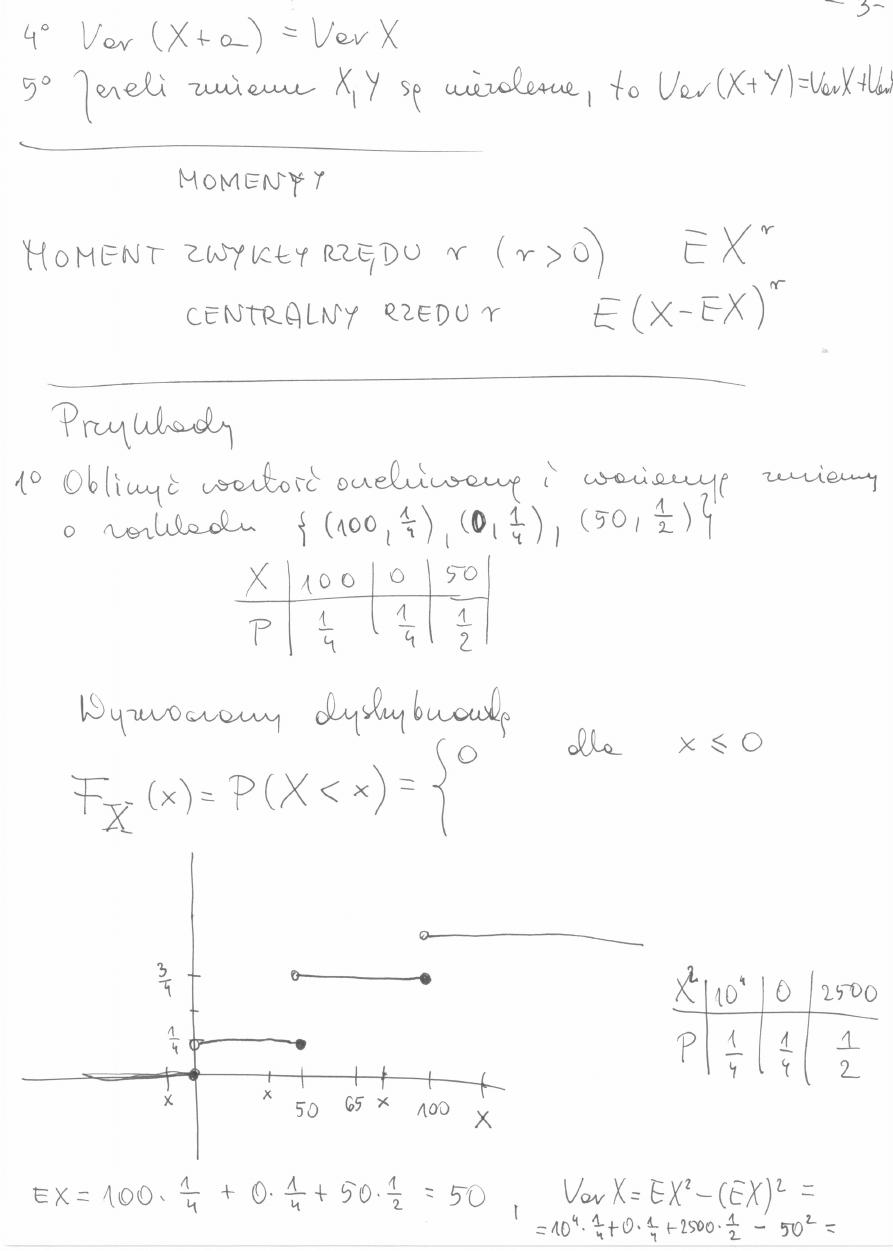 - 3-
4° Var (X+a) = Var X
5° Jeżeli zmienne X, Y są niezależne, to Var(X+Y)=VarX+Var
MOMENTY
MOMENT ZWYKŁY RZĘDU r (r>0) EX^r
CENTRALNY RZEDU r E(X-EX)^r
Przykłady
1° Obliczyć wartość oczekiwaną i wariancję zmiennej
o rozkładzie {(100, 1/4), (0, 1/4), (50, 1/2)}
X | 100 | 0 | 50
P | 1/4 | 1/4 | 1/2
Wyznaczamy dystrybuantę
F_X (x) = P(X < x) = { 0 dla x ≤ 0
3/4
1/4
x x 50 65 x 100 X
X² | 10⁴ | 0 | 2500
P | 1/4 | 1/4 | 1/2
EX = 100 · 1/4 + 0 · 1/4 + 50 · 1/2 = 50 , Var X = EX² - (EX)² =
= 10⁴ · 1/4 + 0 · 1/4 + 2500 · 1/2 - 50² =